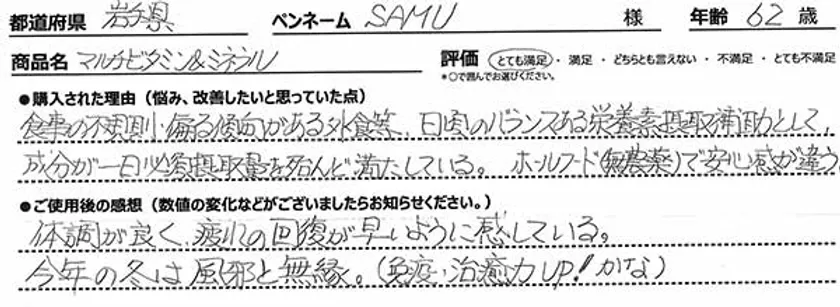 都道府県 岩手県 ペンネーム SAMU 様 年齢 62 歳
商品名 マルチビタミン&ミネラル 評価 とても満足・満足・どちらとも言えない・不満足・とても不満足
*○で囲んでお選びください。
●購入された理由(悩み、改善したいと思っていた点)
食事の不規則・偏る傾向がある外食等、日頃のバランスある栄養素摂取補助として、
成分が一日必須摂取量を殆んど満たしている。 ホールフード(無農薬)で安心感が違う。
●ご使用後の感想(数値の変化などがございましたらお知らせください。)
体調が良く、疲れの回復が早いように感じている。
今年の冬は風邪と無縁。(免疫・治癒力UP!かな)